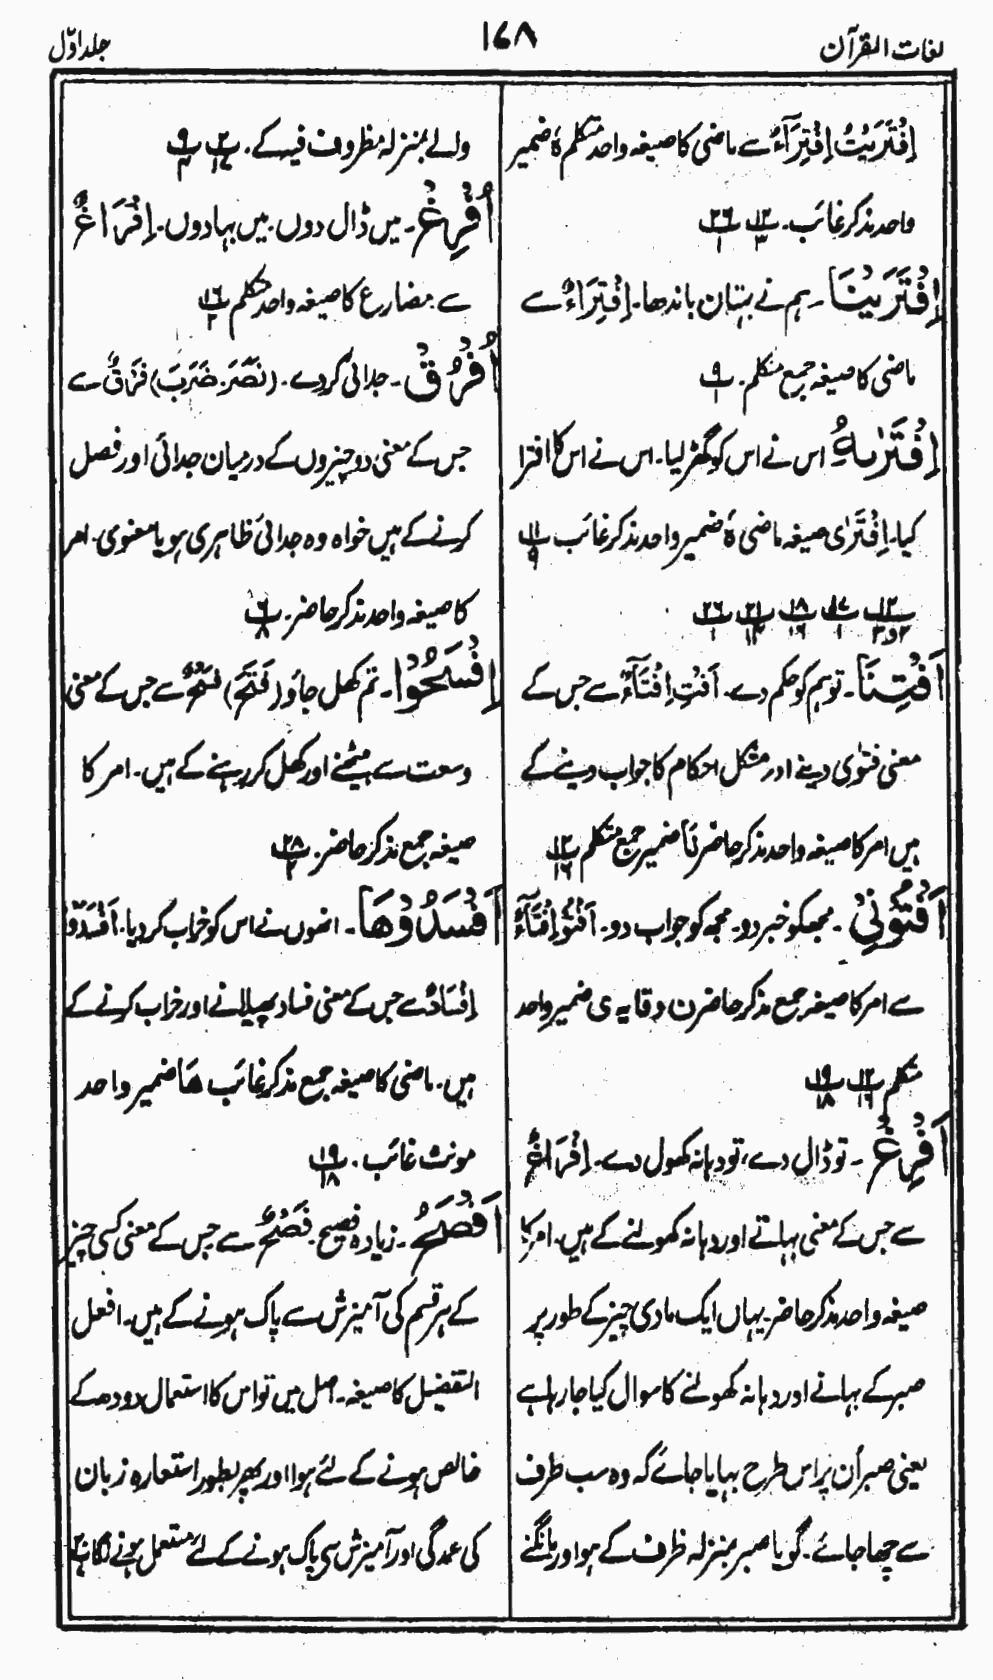 لغات القرآن
۱۶۸
جلد اوّل
اِفْتَرَیْتُ اِفْتِرَآءٌ سے ماضی کا صیغہ واحد متکلم ہٗ ضمیر
واحد مذکر غائب۔ پ۱۲/۳ پ۲۶/۱
اِفْتَرَیْنَا۔ ہم نے بہتان باندھا۔ اِفْتِرَاءٌ سے
ماضی کا صیغہ جمع متکلم۔ پ۹/۱
اِفْتَرٰىہُ اس نے اس کو گھڑ لیا۔ اس نے اس کا افترا
کیا۔ اِفْتَرٰی صیغہ ماضی ہٗ ضمیر واحد مذکر غائب پ۱۱/۹
پ۱۲/۲و۳ پ۱۷/۱ پ۱۸/۱۶ پ۲۱/۱۴ پ۲۶/۱
اَفْتِنَا۔ تو ہم کو حکم دے۔ اَفْتِ اِفْتَآءٌ سے جس کے
معنی فتوٰی دینے اور مشکل احکام کا جواب دینے کے
ہیں امر کا صیغہ واحد مذکر حاضر نَا ضمیر جمع متکلم پ۱۲/۱۶
اَفْتُوْنِیْ۔ مجھکو خبر دو۔ مجھ کو جواب دو۔ اَفْتُوْ اِفْتَآءٌ
سے امر کا صیغہ جمع مذکر حاضر ن وقایہ ی ضمیر واحد
متکلم پ۱۲/۱۶ پ۱۹/۱۸
اَفْرِغْ۔ تو ڈال دے، تو دہانہ کھول دے۔ اِفْرَاغٌ
سے جس کے معنی بہانے اور دہانہ کھولنے کے ہیں۔ امر کا
صیغہ واحد مذکر حاضر۔ یہاں ایک مادی چیز کے طور پر
صبر کے بہانے اور دہانہ کھولنے کا سوال کیا جا رہا ہے
یعنی صبر اُن پر اس طرح بہایا جائے کہ وہ سب طرف
سے چھا جائے۔ گویا صبر بمنزلہ ظرف کے ہو اور مانگنے
والے بمنزلہ مظروف فیہ کے۔ پ۲/۱۷ پ۹/۴
اُفْرِغْ۔ میں ڈال دوں۔ میں بہا دوں۔ اِفْرَاغٌ
سے مضارع کا صیغہ واحد متکلم پ۱۶/۲
اُفْرُقْ۔ جدائی کر دے۔ (نَصَرَ۔ ضَرَبَ) فَرْقٌ سے
جس کے معنی دو چیزوں کے درمیان جدائی اور فصل
کرنے کے ہیں خواہ وہ جدائی ظاہری ہو یا معنوی۔ امر
کا صیغہ واحد مذکر حاضر۔ پ۶/۸
اِفْسَحُوْا۔ تم کھل جاؤ (فَتَحَ) فَسْحٌ سے جس کے معنی
وسعت سے بیٹھنے اور کھل کر رہنے کے ہیں۔ امر کا
صیغہ جمع مذکر حاضر۔ پ۲۸/۲
اَفْسَدُوْھَا۔ انھوں نے اس کو خراب کر دیا۔ اَفْسَدُوْ
اِفْسَادٌ سے جس کے معنی فساد پھیلانے اور خراب کرنے کے
ہیں۔ ماضی کا صیغہ جمع مذکر غائب ھَا ضمیر واحد
مونث غائب۔ پ۱۹/۱۸
اَفْصَحُ۔ زیادہ فصیح۔ فَصْحٌ سے جس کے معنی کسی چیز
کے ہر قسم کی آمیزش سے پاک ہونے کے ہیں۔ افعل
التفضیل کا صیغہ۔ اصل میں تو اس کا استعمال دودھ کے
خالص ہونے کے لئے ہوا اور پھر بطور استعارہ زبان
کی عمدگی اور آمیزش سی پاک ہونے کے لئے مستعمل ہونے لگا